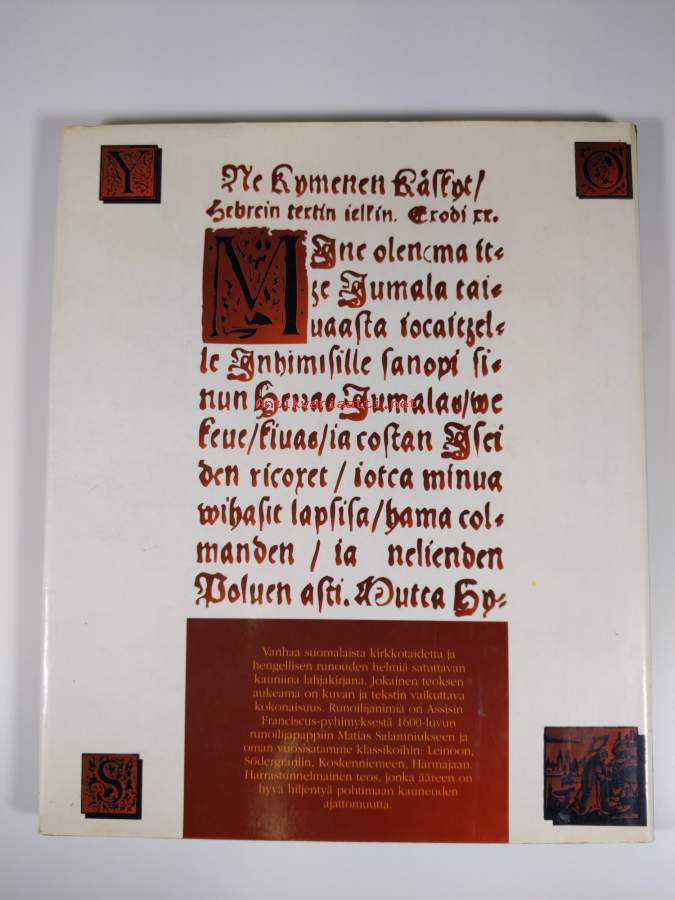 Y
O
Ne Kymenen Käskyt/
Hebrein textin ielkin. Exodi xx.
MIne olen ma it-
ze Jumala tai-
uaasta iocaitzel-
le Inhimisille sanopi si-
nun Jumalas/we
keue/kiuas/ia costan Isei
den ricoxet / iotca minua
wihasit lapsisa/hama col-
manden / ia nelienden
Poluen asti. Mutta Hy-
antikvariaatti.net
Vanhaa suomalaista kirkkotaidetta ja
hengellisen runouden helmiä satuttavan
kauniina lahjakirjana. Jokainen teoksen
aukeama on kuvan ja tekstin vaikuttava
kokonaisuus. Runoilijanimiä on Assisin
Franciscus-pyhimyksestä 1600-luvun
runoilijapappiin Matias Salamniukseen ja
oman vuosisatamme klassikoihin: Leinoon,
Södergraniin, Koskenniemeen, Harmajaan.
Harrastunnelmainen teos, jonka ääreen on
hyvä hiljentyä pohtimaan kauneuden
ajattomuutta.
S